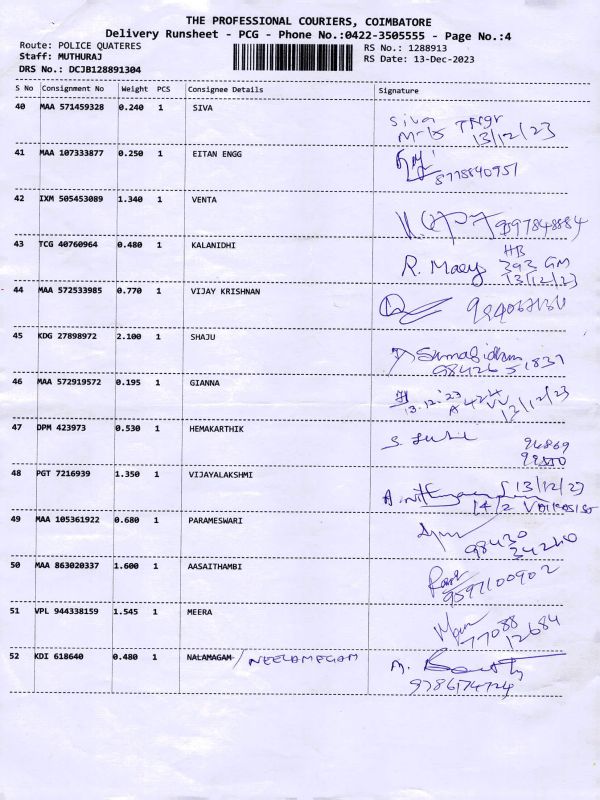 THE PROFESSIONAL COURIERS, COIMBATORE
Delivery Runsheet - PCG - Phone No.:0422-3505555 - Page No.:4
Route: POLICE QUATERES
RS No.: 1288913
Staff: MUTHURAJ
RS Date: 13-Dec-2023
DRS No.: DCJB128891304
S No Consignment No Weight PCS Consignee Details Signature
40 MAA 571459328 0.240 1 SIVA
Siva
13/12/23
41 MAA 107333877 0.250 1 EITAN ENGG
8778840957
42 IXM 505453089 1.340 1 VENTA
9597848884
43 TCG 40760964 0.480 1 KALANIDHI
HB
R. Maey 393 GM
13/12/23
44 MAA 572533985 0.770 1 VIJAY KRISHNAN
45 KDG 27898972 2.100 1 SHAJU
98426 51837
46 MAA 572919572 0.195 1 GIANNA
13.12.23 A 424
12/12/23
47 DPM 423973 0.530 1 HEMAKARTHIK
94869
48 PGT 7216939 1.350 1 VIJAYALAKSHMI
13/12/23
14/2
49 MAA 105361922 0.680 1 PARAMESWARI
98430
34240
50 MAA 863020337 1.600 1 AASAITHAMBI
9597100902
51 VPL 944338159 1.545 1 MEERA
77088
12684
52 KDI 618640 0.480 1 NALAMAGAM / NEELAMEGAM
M.
9786174724